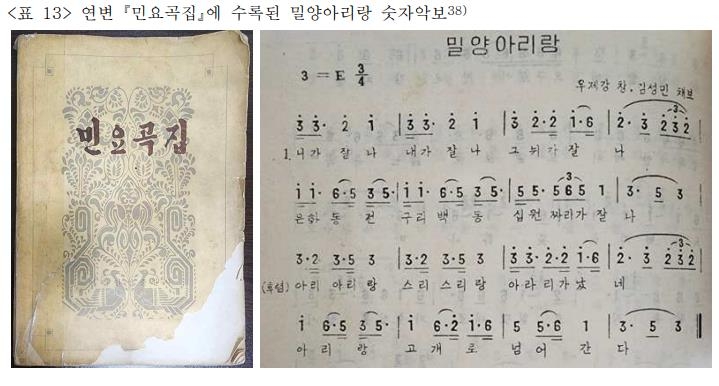 <표 13> 연변 『민요곡집』에 수록된 밀양아리랑 숫자악보38)
민요곡집
밀양아리랑
3 = E 3/4
우제강 창, 김성민 채보
3 3· 2 1 | 3 3· 2 1 | 3 2·2 1·6 | 2· 3 2 3 2 |
1. 니가 잘 나 내가 잘 나 그 뉘가 잘 나
1 1· 6·5 3 5· | 1 1· 6·5 3 5· | 5 5· 5 6 5 1 | 3· 5 3
은화 동 전 구리 백 동 십원 짜리가 잘 나
3·2 3·5 3 | 3·2 3·5 3 | 3·3 2·2 1·6 | 2· 3 2 3 2
(후렴) 아리 아리 랑 스리 스리 랑 아라 리가 났 네
1 6·5 3 5· | 1 6·2 1·6 | 5 5·6 1 | 3· 5 3
아 리 랑 고 개 로 넘 어 간 다